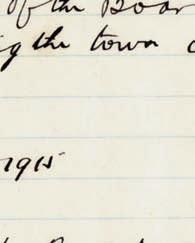 of the Boar
ing the town
1915